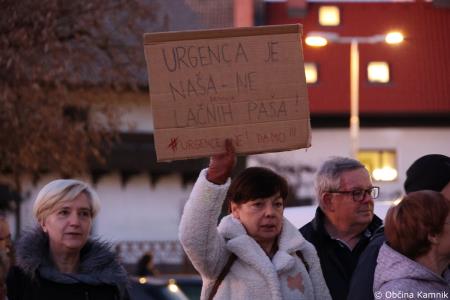 URGENCA JE
NAŠA - NE
LAČNIH PAŠA!
#URGENCE NE! DAMO!!!
© Občina Kamnik